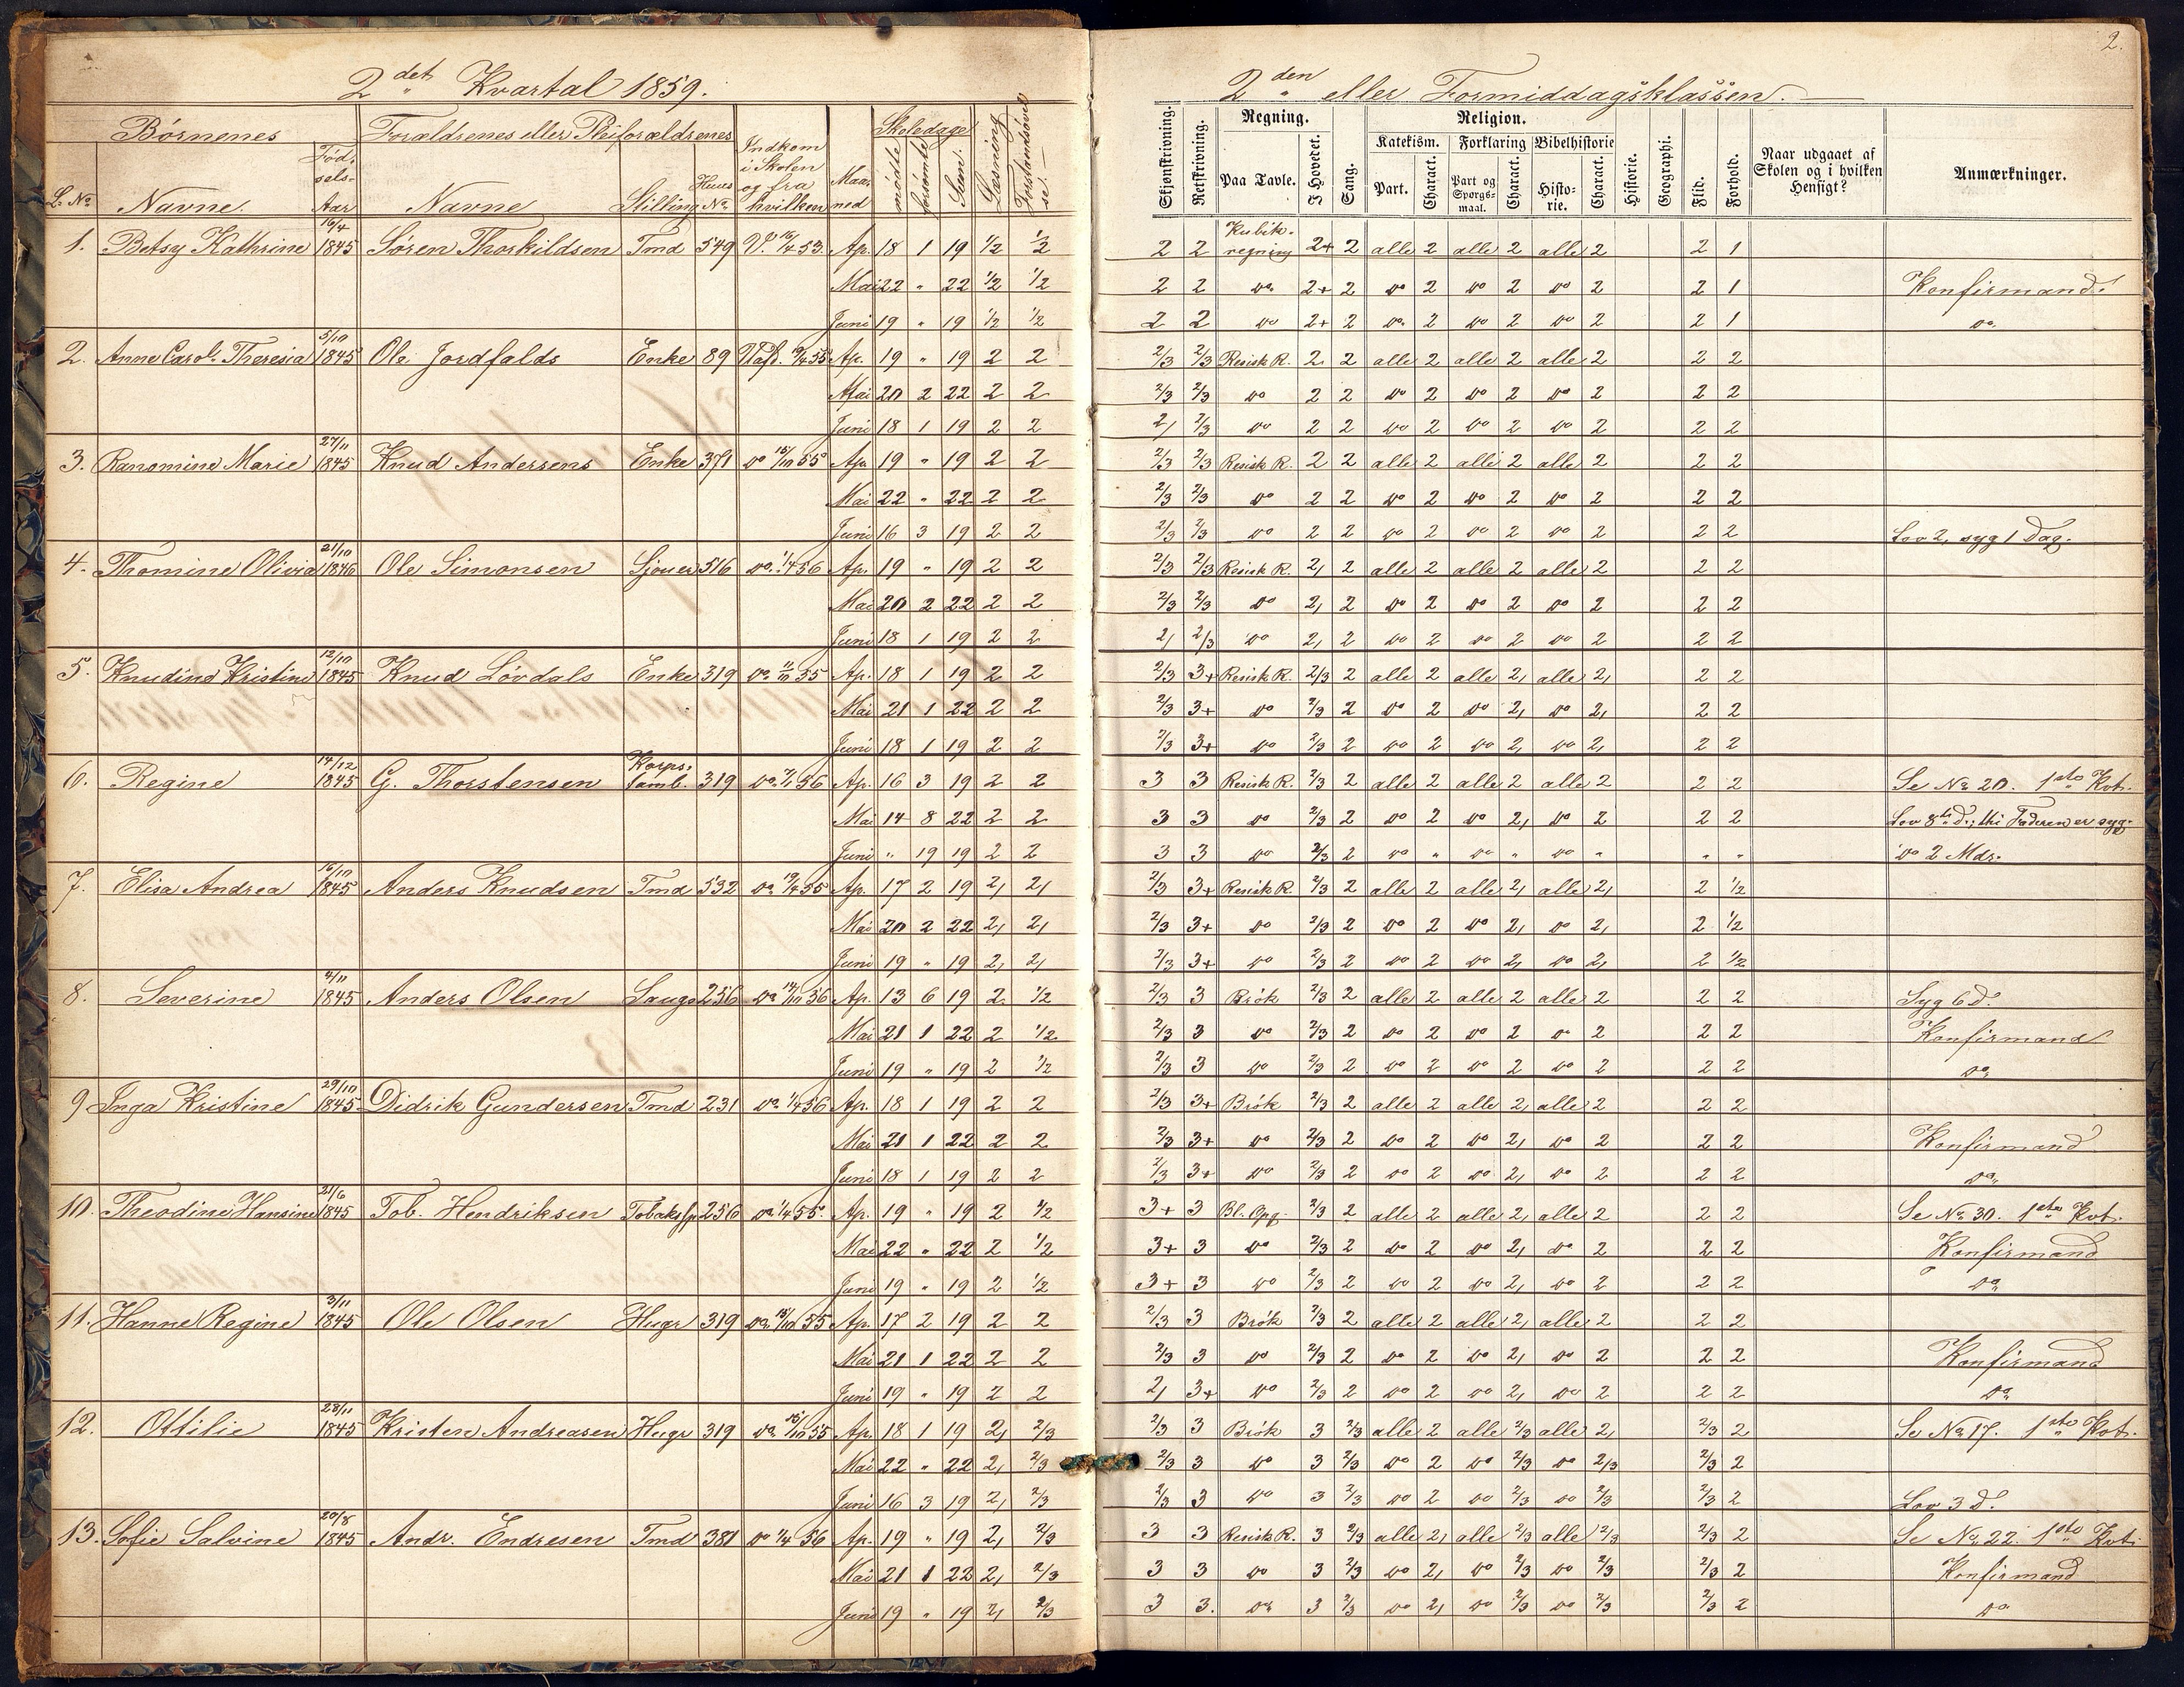 2.
2det Kvartal 1859.
2den eller Formiddagsklassen.
Børnenes Forældrenes eller Pleiforældrenes Indkom i Skolen og fra hvilken Maaned Skoledage Læsning Forstandsøvelse
L. No Navne. Fødselsaar Navne Stilling Huus No mødte forsømte Sum.
Skjønskrivning. Retskrivning. Regning. Paa Tavle. I Hovedet. Sang. Religion. Katekism. Part. Charact. Forklaring Part og Spørgsmaal. Charact. Bibelhistorie Historie. Charact. Historie. Geographi. Flid. Forhold. Naar udgaaet af Skolen og i hvilken Hensigt? Anmærkninger.
1. Betsy Kathrine 16/4 1845 Søren Thorkildsen Tmd 549 V. 16/4 53. Ap. 18 1 19 1/2 1/2 2 2 Kubikregning 2+ 2 alle 2 alle 2 alle 2 2 1
Mai 22 " 22 1/2 1/2 2 2 do 2+ 2 do 2 do 2 do 2 2 1 Konfirmand.
Juni 19 " 19 1/2 1/2 2 2 do 2+ 2 do 2 do 2 do 2 2 1 do
2. Anne Carol. Theresia 5/10 1845 Ole Jordfalds Enke 89 55 Ap. 19 " 19 2 2 2/3 2/3 Resisk R. 2 2 alle 2 alle 2 alle 2 2 2
Mai 20 2 22 2 2 2/3 2/3 do 2 2 do 2 do 2 do 2 2 2
Juni 18 1 19 2 2 2, 2/3 do 2 2 do 2 do 2 do 2 2 2
3. Ranomine Marie 27/11 1845 Knud Andersens Enke 371 do 15/10 55 Ap. 19 " 19 2 2 2/3 2/3 Resisk R. 2 2 alle 2 alle 2 alle 2 2 2
Mai 22 " 22 2 2 2/3 2/3 do 2 2 do 2 do 2 do 2 2 2
Juni 16 3 19 2 2 2/3 2/3 do 2 2 do 2 do 2 do 2 2 2 Lov 2, syg 1 Dag.
4. Thomine Olivia 21/10 1846 Ole Simonsen Sjouer 516 do 1/4 56 Ap. 19 " 19 2 2 2/3 2/3 Resisk R. 2, 2 alle 2 alle 2 alle 2 2 2
Mai 20 2 22 2 2 2/3 2/3 do 2, 2 do 2 do 2 do 2 2 2
Juni 18 1 19 2 2 2, 2/3 do 2, 2 do 2 do 2 do 2 2 2
5. Knudine Kristine 12/10 1845 Knud Løvdals Enke 319 do 11/10 55 Ap. 18 1 19 2 2 2/3 3+ Resisk R. 2/3 2 alle 2 alle 2, alle 2, 2 2
Mai 21 1 22 2 2 2/3 3+ do 2/3 2 do 2 do 2, do 2, 2 2
Juni 18 1 19 2 2 2/3 3+ do 2/3 2 do 2 do 2, do 2, 2 2
6. Regine 14/12 1845 G. Thorstensen Korps. tamb. 319 do 56 Ap. 16 3 19 2 2 3 3 Resisk R. 2/3 2 alle 2 alle 2 alle 2 2 2 Se No 20. 1ste Kvt.
Mai 14 8 22 2 2 3 3 do 2/3 2 do 2 do 2, do 2 2 2 Lov 8te d.; thi Faderen er syg.
Juni " 19 19 2 2 3 3 do 2/3 2 do " do " do " " " do 2 Mdr.
7. Elisa Andrea 16/10 1845 Anders Knudsen Tmd 532 do 19/4 55 Ap. 17 2 19 2, 2, 2/3 3+ Resisk R. 2/3 2 alle 2 alle 2, alle 2, 2 1/2
Mai 20 2 22 2, 2, 2/3 3+ do 2/3 2 do 2 do 2, do 2, 2 1/2
Juni 19 " 19 2, 2, 2/3 3+ do 2/3 2 do 2 do 2, do 2, 2 1/2
8. Severine 4/11 1845 Anders Olsen Laugs 256 do 14/10 56 Ap. 13 6 19 2 1/2 2/3 3 Brök 2/3 2 alle 2 alle 2 alle 2 2 2 Syg 6 d.
Mai 21 1 22 2 1/2 2/3 3 do 2/3 2 do 2 do 2 do 2 2 2 Konfirmand
Juni 19 " 19 2 1/2 2/3 3 do 2/3 2 do 2 do 2 do 2 2 2 do
9 Inga Kristine 29/10 1845 Didrik Gundersen Tmd 231 do 1/4 56 Ap. 18 1 19 2 2 2/3 3+ Brök 2/3 2 alle 2 alle 2, alle 2 2 2
Mai 21 1 22 2 2 2/3 3+ do 2/3 2 do 2 do 2, do 2 2 2 Konfirmand
Juni 18 1 19 2 2 2/3 3+ do 2/3 2 do 2 do 2, do 2 2 2 do
10. Theodine Hansine 21/6 1845 Tob. Hendriksen Tobaksp 256 do 1/4 55. Ap. 19 " 19 2 1/2 3+ 3 Bl. Opg. 2/3 2 alle 2 alle 2, alle 2 2 2 Se No 30. 1ste Kvt.
Mai 22 " 22 2 1/2 3+ 3 do 2/3 2 do 2 do 2, do 2 2 2 Konfirmand
Juni 19 " 19 2 1/2 3+ 3 do 2/3 2 do 2 do 2, do 2 2 2 do
11. Hanne Regine 3/11 1845 Ole Olsen Hugr 319 do 15/10 55 Ap. 17 2 19 2 2 2/3 3 Brök 2/3 2 alle 2 alle 2, alle 2 2 2
Mai 21 1 22 2 2 2/3 3 do 2/3 2 do 2 do 2, do 2 2 2 Konfirmand
Juni 19 " 19 2 2 2, 3+ do 2/3 2 do 2 do 2, do 2 2 2 do
12. Ottilie 28/11 1845 Kristen Andreasen Hugr 319 do 15/10 55 Ap. 18 1 19 2, 2/3 2/3 3 Brök 3 2/3 alle 2 alle 2/3 alle 2, 2/3 2 Se No 17. 1ste Kvt.
Mai 22 " 22 2, 2/3 2/3 3 do 3 2/3 do 2 do 2/3 do 2/3 2/3 2
Juni 16 3 19 2, 2/3 2/3 3 do 3 2/3 do 2 do 2/3 do 2/3 2/3 2 Lov 3 d.
13. Sofie Salvine 20/8 1845 Andr. Endresen Tmd 381 do 1/4 56 Ap. 19 " 19 2, 2/3 3 3 Resisk R. 3 2/3 alle 2, alle 2/3 alle 2/3 2/3 2 Se No 22. 1ste Kvt.
Mai 21 1 22 2, 2/3 3 3 do 3 2/3 do 2, do 2/3 do 2/3 2/3 2 Konfirmand
Juni 19 " 19 2, 2/3 3 3. do 3 2/3 do 2, do 2/3 do 2/3 2/3 2 do